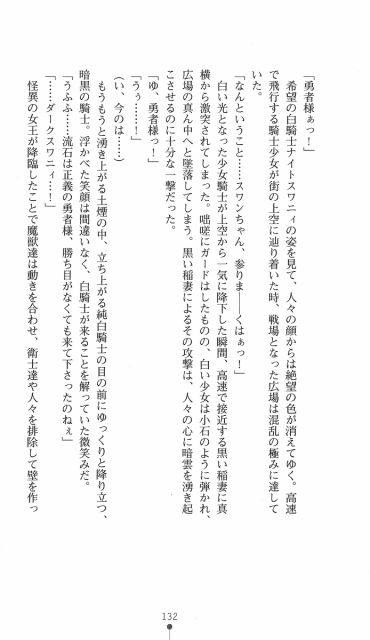 「勇者様ぁっ！」
　希望の白騎士ナイトスワニィの姿を見て、人々の顔からは絶望の色が消えてゆく。高速
で飛行する騎士少女が街の上空に辿り着いた時、戦場となった広場は混乱の極みに達して
いた。
「なんということ……スワンちゃん、参りま――くはぁっ！」
　白い光となった少女騎士が上空から一気に降下した瞬間、高速で接近する黒い稲妻に真
横から激突されてしまった。咄嗟にガードはしたものの、白い少女は小石のように弾かれ、
広場の真ん中へと墜落してしまう。黒い稲妻によるその攻撃は、人々の心に暗雲を湧き起
こさせるのに十分な一撃だった。
「ゆ、勇者様っ！」
「うぅ……！」
（い、今のは……）
　もうもうと湧き上がる土煙の中、立ち上がる純白騎士の目の前にゆっくりと降り立つ、
暗黒の騎士。浮かべた笑顔は間違いなく、白騎士が来ることを解っていた微笑みだ。
「うふふ……流石は正義の勇者様、勝ち目がなくても来て下さったのねぇ」
「……ダークスワニィ…！」
　怪異の女王が降臨したことで魔獣達は動きを合わせ、衛士達や人々を排除して壁を作っ
132